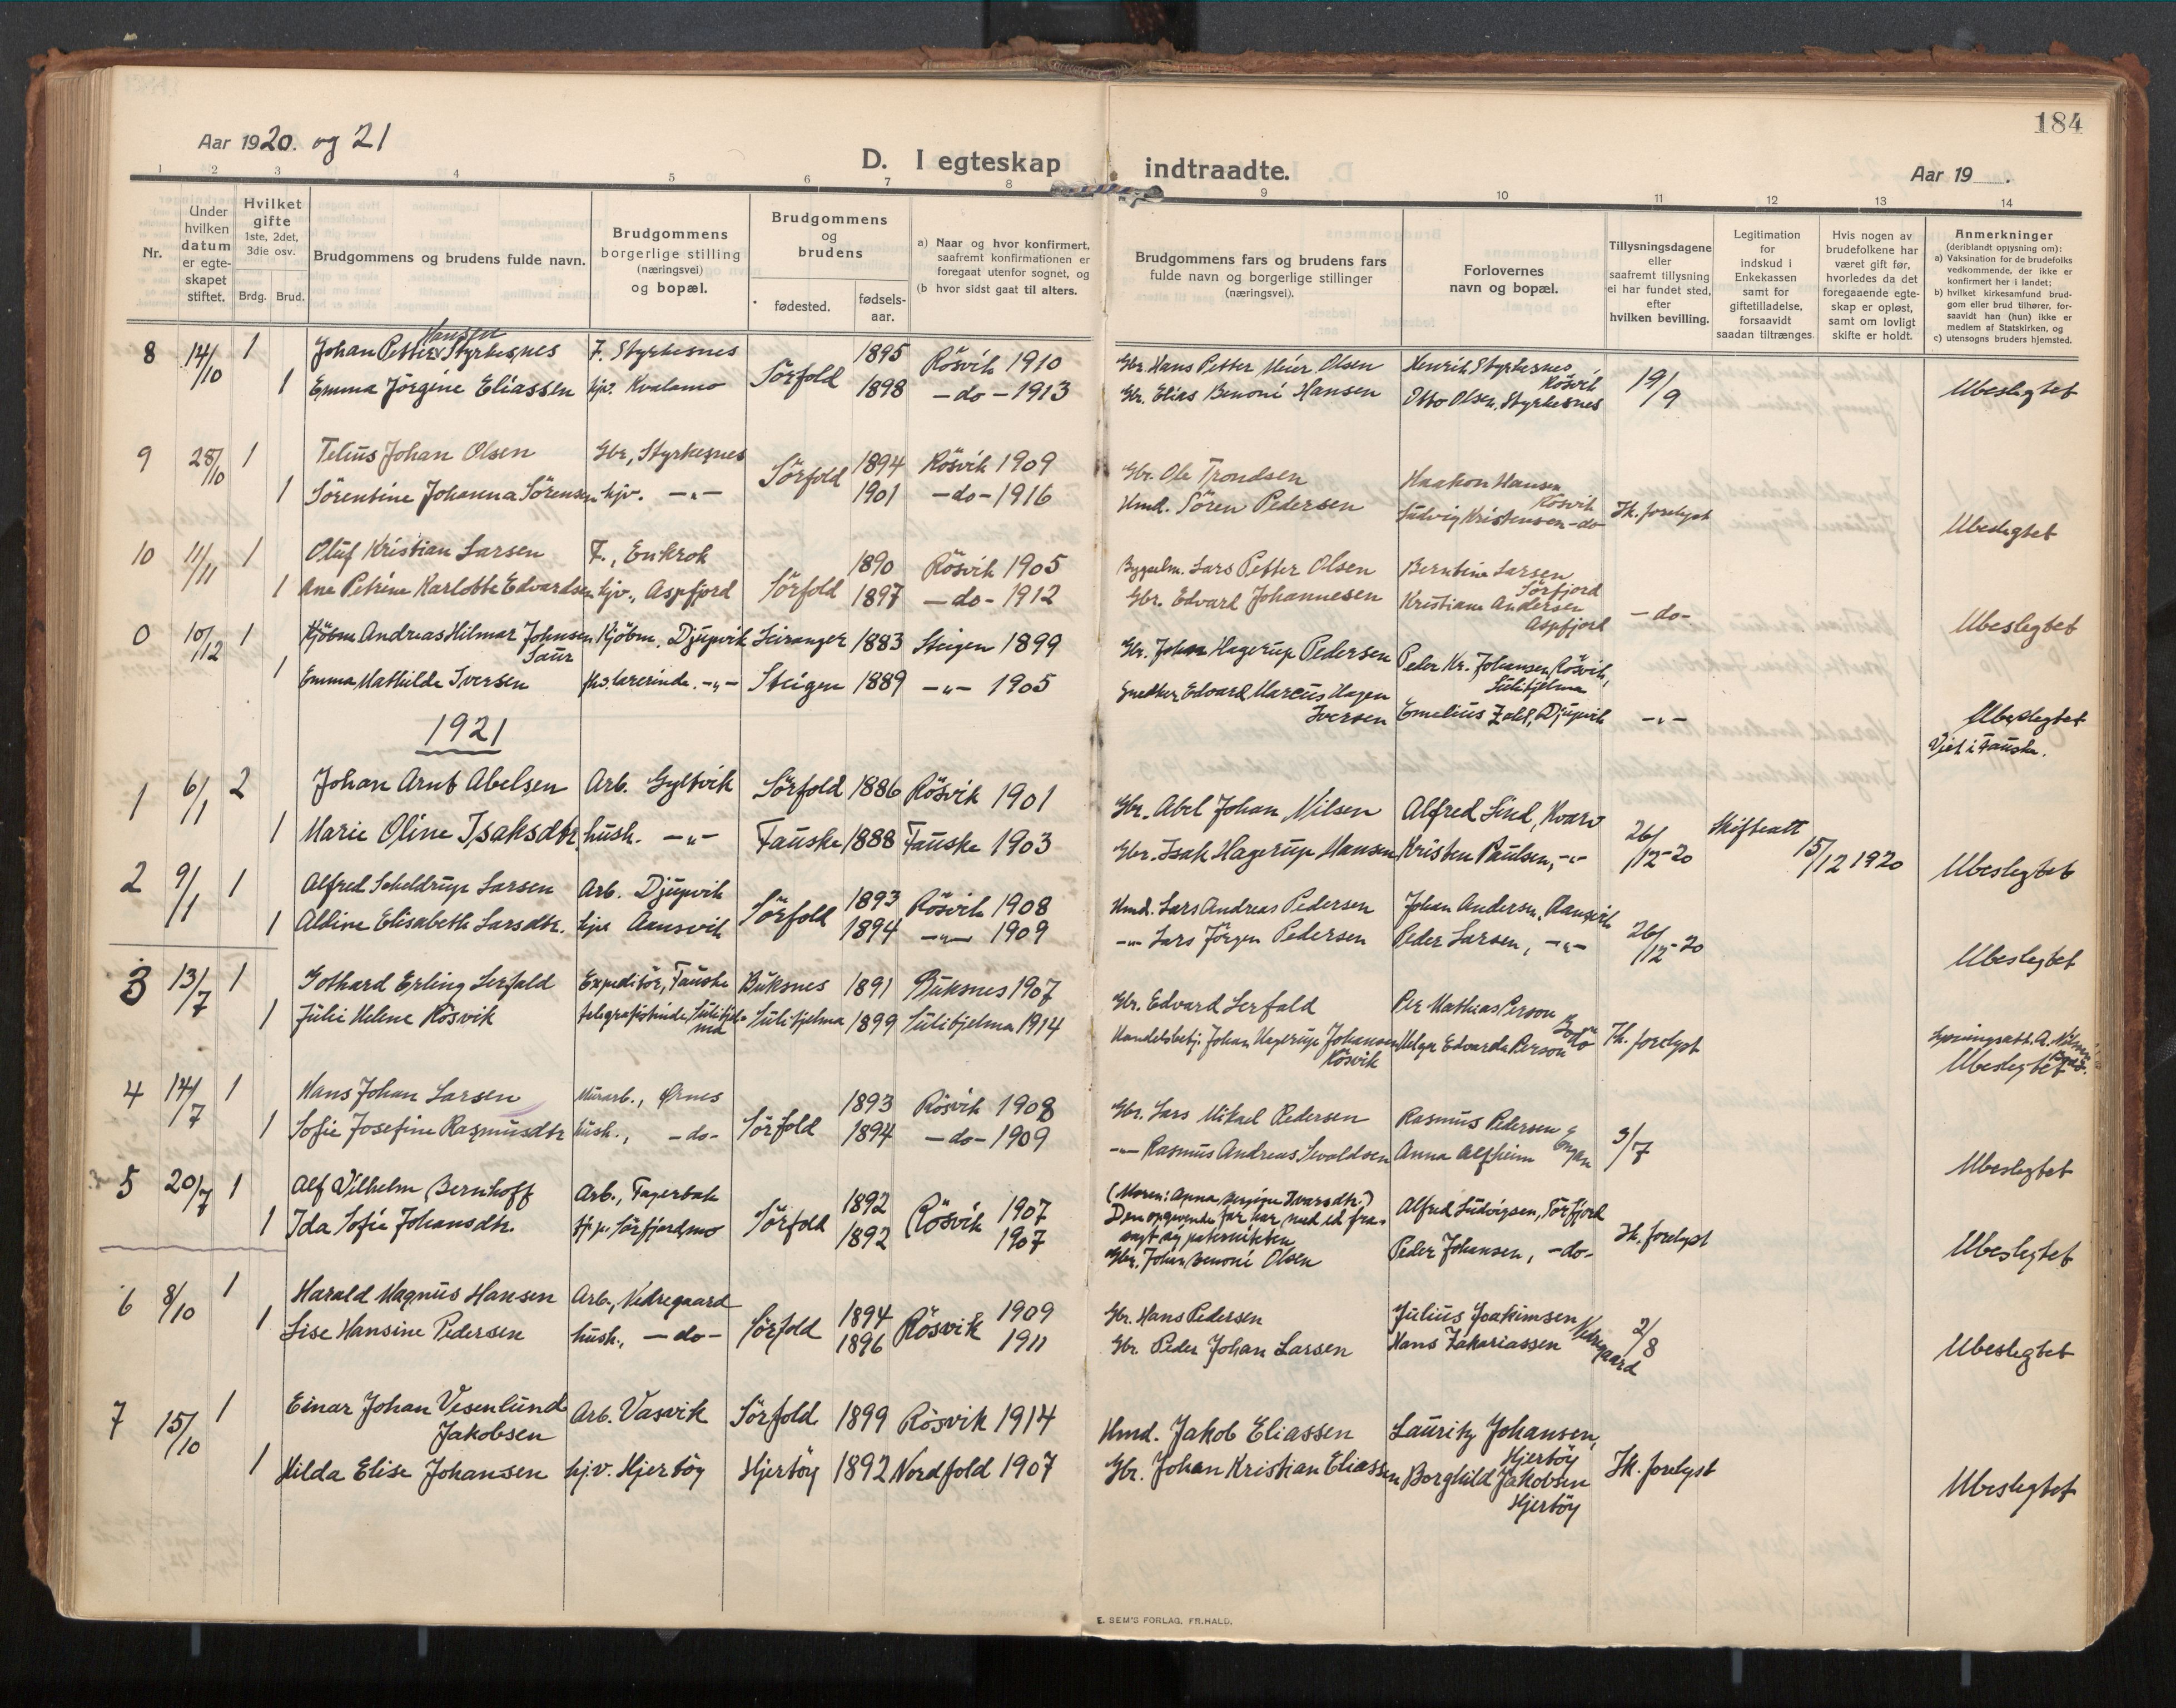 184
Aar 1920. og 21
D. I egteskap indtraadte.
Aar 19 .
1 2 3 4 5 6 7 8 9 10 11 12 13 14
Nr.
Under hvilken datum er egte-skapet stiftet.
Hvilket gifte 1ste, 2det, 3die osv.
Brdg. Brud.
Brudgommens og brudens fulde navn.
Brudgommens borgerlige stilling (næringsvei) og bopæl.
Brudgommens og brudens
fødested.
fødsels-aar.
a) Naar og hvor konfirmert, saafremt konfirmationen er foregaat utenfor sognet, og
(b hvor sidst gaat til alters.
Brudgommens fars og brudens fars fulde navn og borgerlige stillinger (næringsvei).
Forlovernes navn og bopæl.
Tillysningsdagene eller saafremt tillysning ei har fundet sted, efter hvilken bevilling.
Legitimation for indskud i Enkekassen samt for giftetilladelse, forsaavidt saadan tiltrænges.
Hvis nogen av brudefolkene har været gift før, hvorledes da det foregaaende egte-skap er opløst, samt om lovligt skifte er holdt.
Anmerkninger
(deriblandt opjysning om):
a) Vaksination for de brudefolks vedkommende, der ikke er konfirmert her i landet;
b) hvilket kirkesamfund brud-gom eller brud tilhører, for-saavidt han (hun) ikke er medlem af Statskirken, og
c) utensogns bruders hjemsted.
8 14/10 1 Johan Petter Hansen Styrkesnes F. Styrkesnes Sörfold 1895 Rösvik 1910 Gbr. Hans Petter Meier Olsen Henrik Styrkesnes, Rösvik 19/9 Ubeslegtet
1 Emma Jörgine Eliassen hjv. Kvalamo 1898 -do- 1913 Gbr. Elias Benoni Hansen Otto Olsen, Styrkesnes
9 28/10 1 Telius Johan Olsen Gbr., Styrkesnes Sörfold 1894 Rösvik 1909 Gbr. Ole Trondsen Haakon Hansen Rösvik
1 Sörentine Johanna Sörensen hjv. -"- 1901 -do- 1916 Hmd. Sören Pedersen Ludvig Kristensen -do- Th. forelyst Ubeslegtet
10 11/11 1 Oluf Kristian Larsen F., Enkrok Sörfold 1890 Rösvik 1905 Lars Petter Olsen Berntine Larsen Sörfjord
1 Ane Petrine Karlotte Edvardsen hjv., Aspfjord 1897 -do- 1912 Gbr. Edvard Johannesen Kristiane Andersen Aspfjord -do- Ubeslegtet
0 10/12 1 Kjöbm Andreas Hilmar Johnsen Saur Kjöbm. Djupvik Leiranger 1883 Steigen 1899 Gbr. Johan Hagerup Pedersen Peder Kr. Johansen, Rösvik, Sulitjelma
1 Emma Mathilde Iversen lærerinde. -"- Steigen 1889 -"- 1905 Snedker Edvard Marcus Hagen Iversen Emelius Zahl, Djupvik -"- Ubeslegtet
Viet i Fauske.
1921
1 6/1 2 Johan Arnt Abelsen Arb. Gyltvik Sörfold 1886 Rösvik 1901 Gbr. Abel Johan Nilsen Alfred Lind, Kvarv 26/12-20 Skifteatt 15/12 1920 Ubeslegtet
1 Marie Oline Isaksdtr. hush. -"- Fauske 1888 Fauske 1903 Gbr. Isak Hagerup Hansen Kristen Paulsen, -"-
2 9/1 1 Alfred Scheldrup Larsen Arb. Djupvik Sörfold 1893 Rösvik 1908 Hmd. Lars Andreas Pedersen Johan Andersen, Aansvik 26/12-20
1 Aldine Elisabeth Larsdtr. hjv. Aansvik 1894 -"- 1909 -"- Lars Jörgen Pedersen Peder Larsen, -"- Ubeslegtet
3 13/7 1 Gothard Erling Lerfald Expeditör, Fauske Buksnes 1891 Buksnes 1907 Gbr. Edvard Lerfald Per Mathias Person Bodö
1 Julie Helene Rösvik telegrafistinde, Sulitjelma Sulitjelma 1899 Sulitjelma 1914 Handelsbetj. Johan Hagerup Johansen Rösvik Helga Edvarda Person Th. forelyst Lysningsatt. A. Nilsen
Ubeslegtet
4 14/7 1 Hans Johan Larsen Minarb., Ørnes Sörfold 1893 Rösvik 1908 Gbr. Lars Mikael Pedersen Rasmus Pedersen Engan 3/7
1 Sofie Josefine Rasmusdtr hush., -do- 1894 -do- 1909 -"- Rasmus Andreas Sivaldsen Anna Alfheim Ubeslegtet
5 20/7 1 Alf Vilhelm Bernhoff Arb., Fagerbak Sörfold 1892 Rösvik 1907 (Moren: Anna Bergine Ivarsdtr.) Den opgivende far har med ed fra-sagt sig paterniteten Alfred Ludvigsen, Törfjord
1 Ida Sofie Johansdtr. Sörfjordmo 1892 1907 Gbr. Johan Benoni Olsen Peder Johansen, -do- Th. forelyst Ubeslegtet
6 8/10 1 Harald Magnus Hansen Arb., Nedregaard Sörfold 1894 Rösvik 1909 Gbr. Hans Pedersen Julius Joakimsen Nedregaard 2/8
1 Lise Hansine Pedersen hush., -do- 1896 1911 Gbr. Peder Johan Larsen Hans Zakariassen Ubeslegtet
7 15/10 1 Einar Johan Vesenlund Jakobsen Arb. Vasvik Sörfold 1899 Rösvik 1914 Hmd. Jakob Eliassen Lauritz Johansen, Hjertöy
1 Hilda Elise Johansen hjv. Hjertöy Hjertöy 1892 Nordfold 1907 Gbr. Johan Kristian Eliassen Borghild Jakobsen Hjertöy Th. forelyst Ubeslegtet
E. SEM'S FORLAG. FR.HALD.